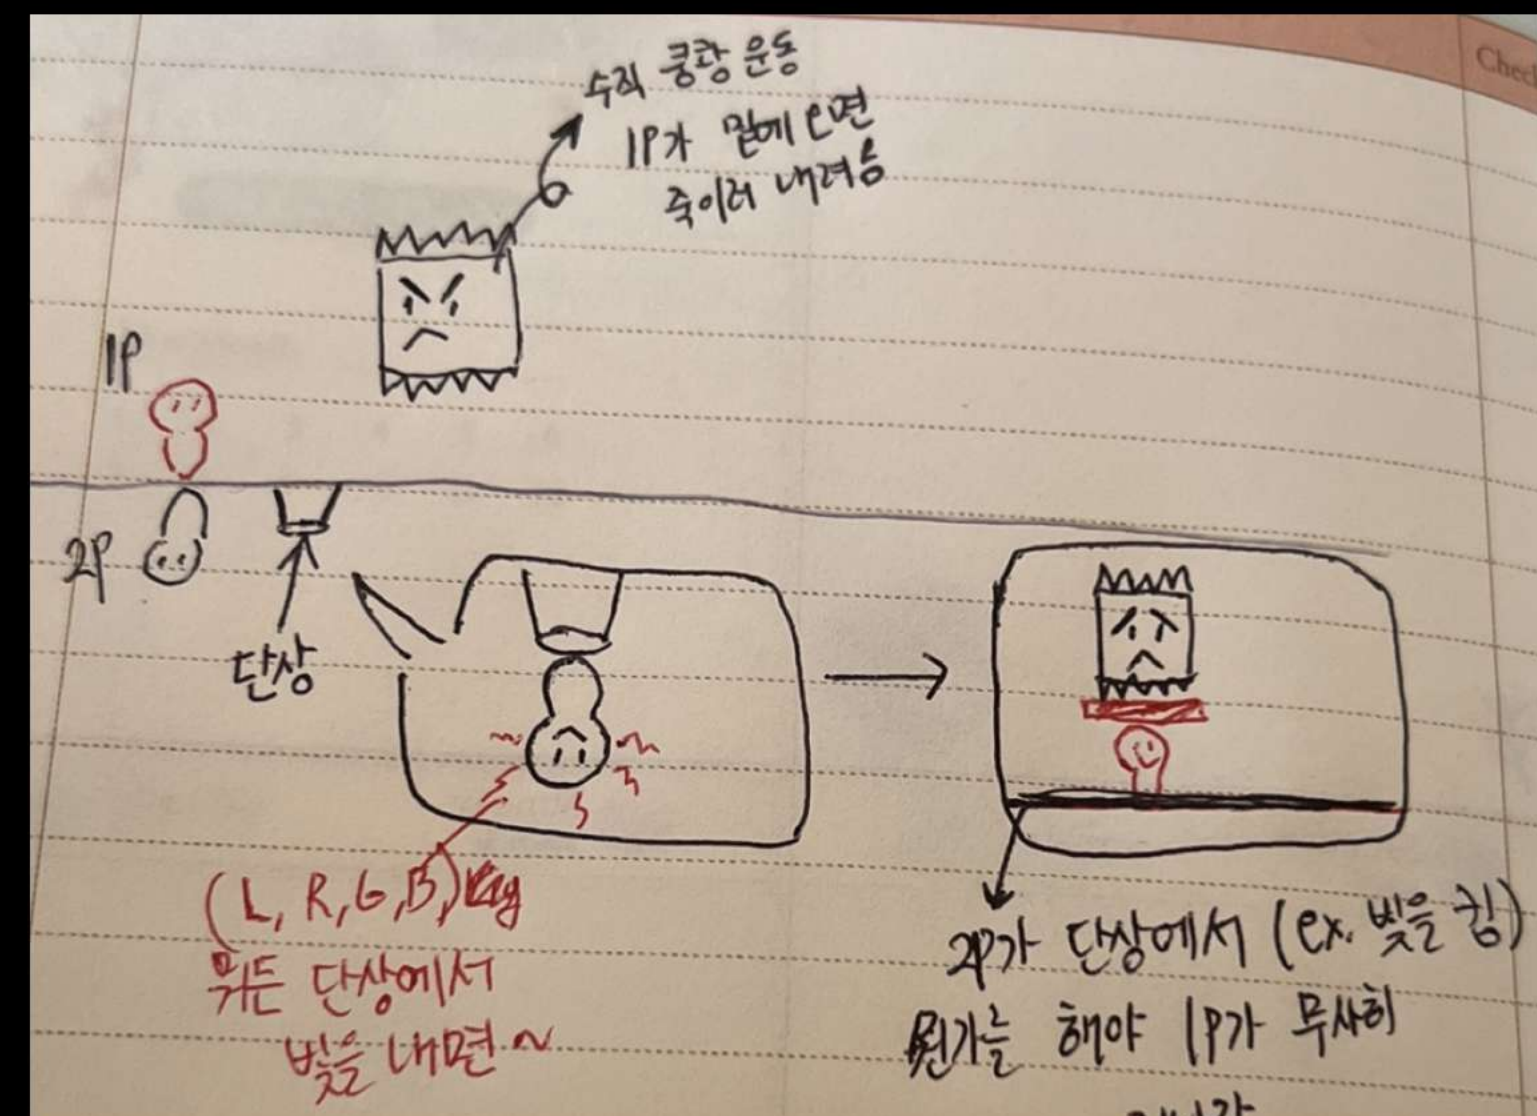 Check
수직 쿵쾅 운동
1P가 밑에 오면
죽이러 내려승
1P
2P
단상
(L, R, G, B) key
뭐든 단상에서
빛을 내면~
2P가 단상에서 (ex. 빛을 킴)
뭔가를 해야 1P가 무사히